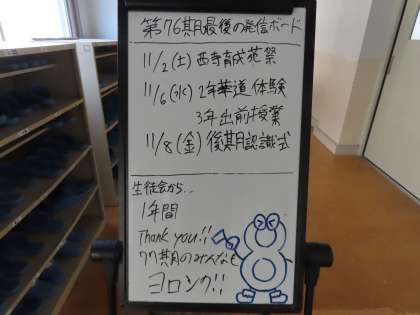 第76期最後の発信ボード
11/2(土) 西寺育成苑祭
11/6(水) 2年華道体験
3年出前授業
11/8(金) 後期認識式
生徒会から…
1年間
Thank you!!
77期のみんなも
ヨロシク!!